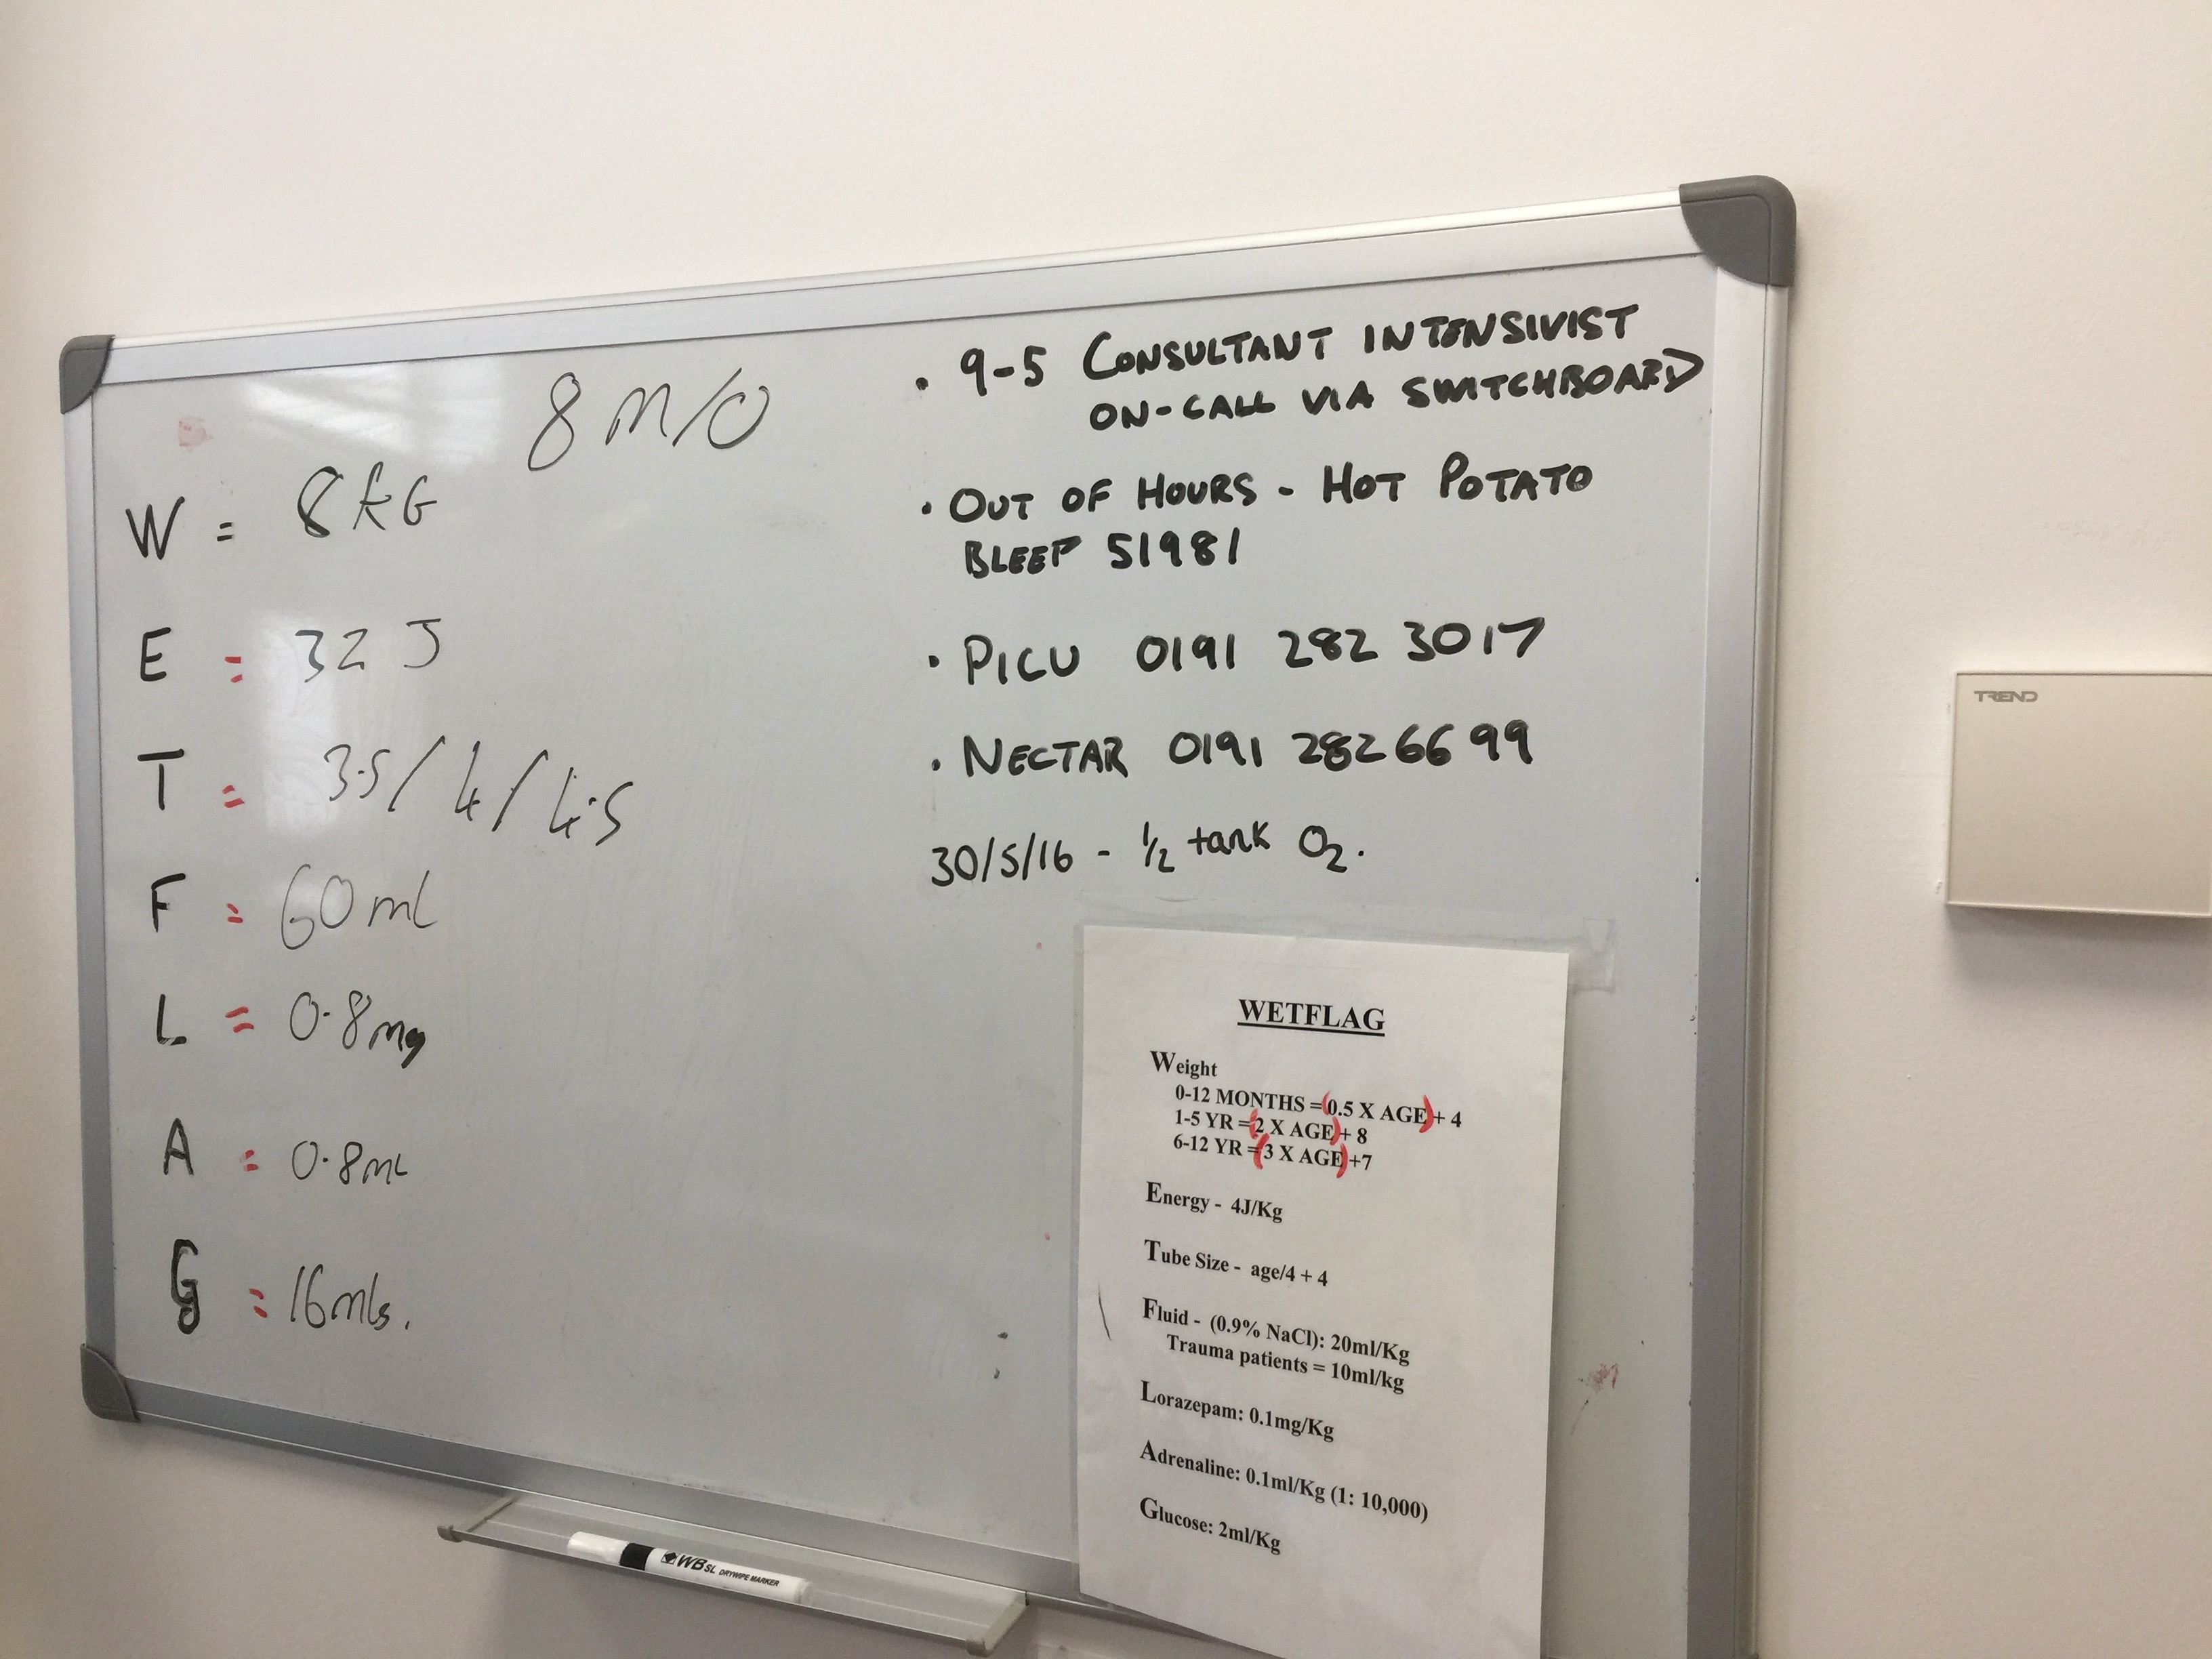 8 M/O
W = 8 kG
E = 32 J
T = 3.5 / 4 / 4.5
F = 60 ml
L = 0.8mg
A = 0.8ml
G = 16mls.
• 9-5 CONSULTANT INTENSIVIST
ON-CALL VIA SWITCHBOARD
• OUT OF HOURS - HOT POTATO
BLEEP 51981
• PICU 0191 282 3017
• NECTAR 0191 282 6699
30/5/16 - 1/2 tank O2.
WETFLAG
Weight
0-12 MONTHS = (0.5 X AGE) + 4
1-5 YR = (2 X AGE) + 8
6-12 YR = (3 X AGE) +7
Energy - 4J/Kg
Tube Size - age/4 + 4
Fluid - (0.9% NaCl): 20ml/Kg
Trauma patients = 10ml/kg
Lorazepam: 0.1mg/Kg
Adrenaline: 0.1ml/Kg (1: 10,000)
Glucose: 2ml/Kg
TREND
WB SL DRYWIPE MARKER